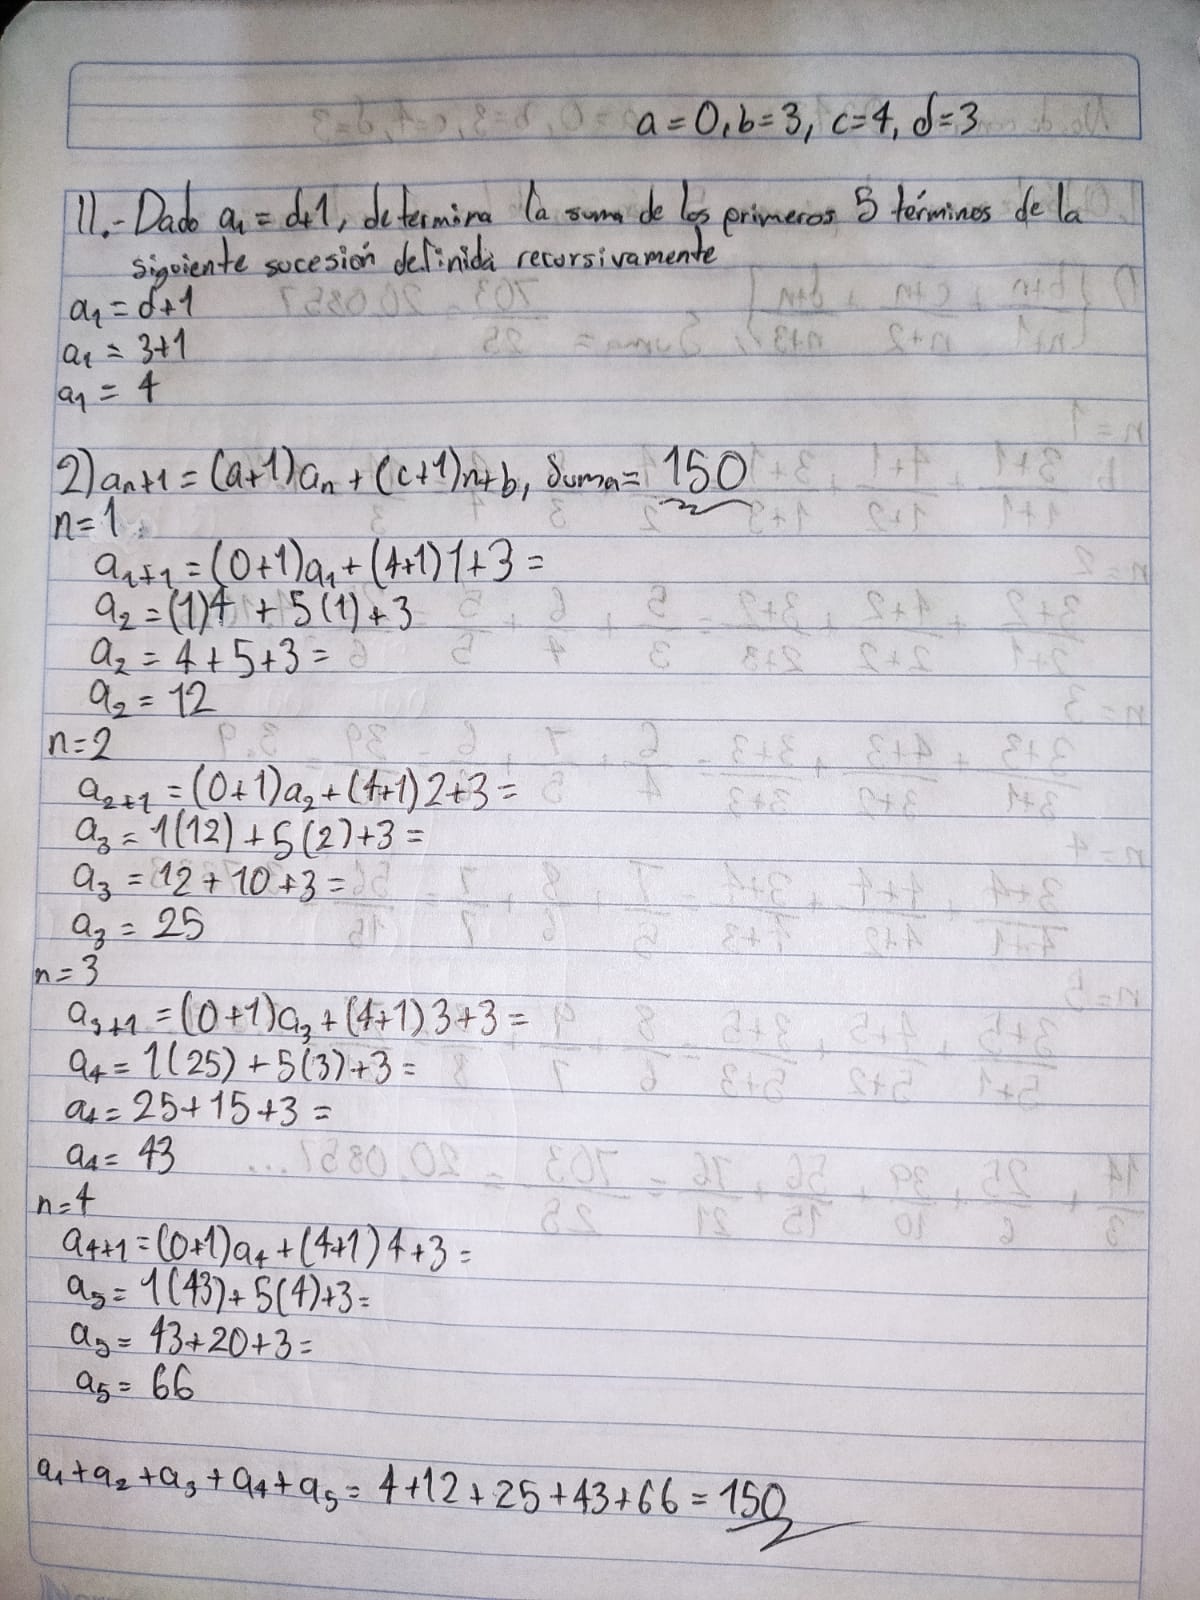 a=0, b=3, c=4, d=3
11.- Dado a₁ = d+1, determina la suma de los primeros 5 términos de la
siguiente sucesión definida recursivamente
a₁ = d+1
a₁ = 3+1
a₁ = 4
2) aₙ+1 = (a+1)aₙ + (c+1)n+b, Suma= 150
n=1
a₁₊₁ = (0+1)a₁ + (4+1)1+3 =
a₂ = (1)4 + 5(1)+3
a₂ = 4+5+3=
a₂ = 12
n=2
a₂₊₁ = (0+1)a₂ + (4+1)2+3 =
a₃ = 1(12) + 5(2)+3 =
a₃ = 12+10+3 =
a₃ = 25
n=3
a₃₊₁ = (0+1)a₃ + (4+1)3+3 =
a₄ = 1(25) + 5(3)+3 =
a₄ = 25+15+3 =
a₄ = 43
n=4
a₄₊₁ = (0+1)a₄ + (4+1)4+3 =
a₅ = 1(43) + 5(4)+3=
a₅ = 43+20+3=
a₅ = 66
a₁+a₂+a₃+a₄+a₅ = 4+12+25+43+66 = 150